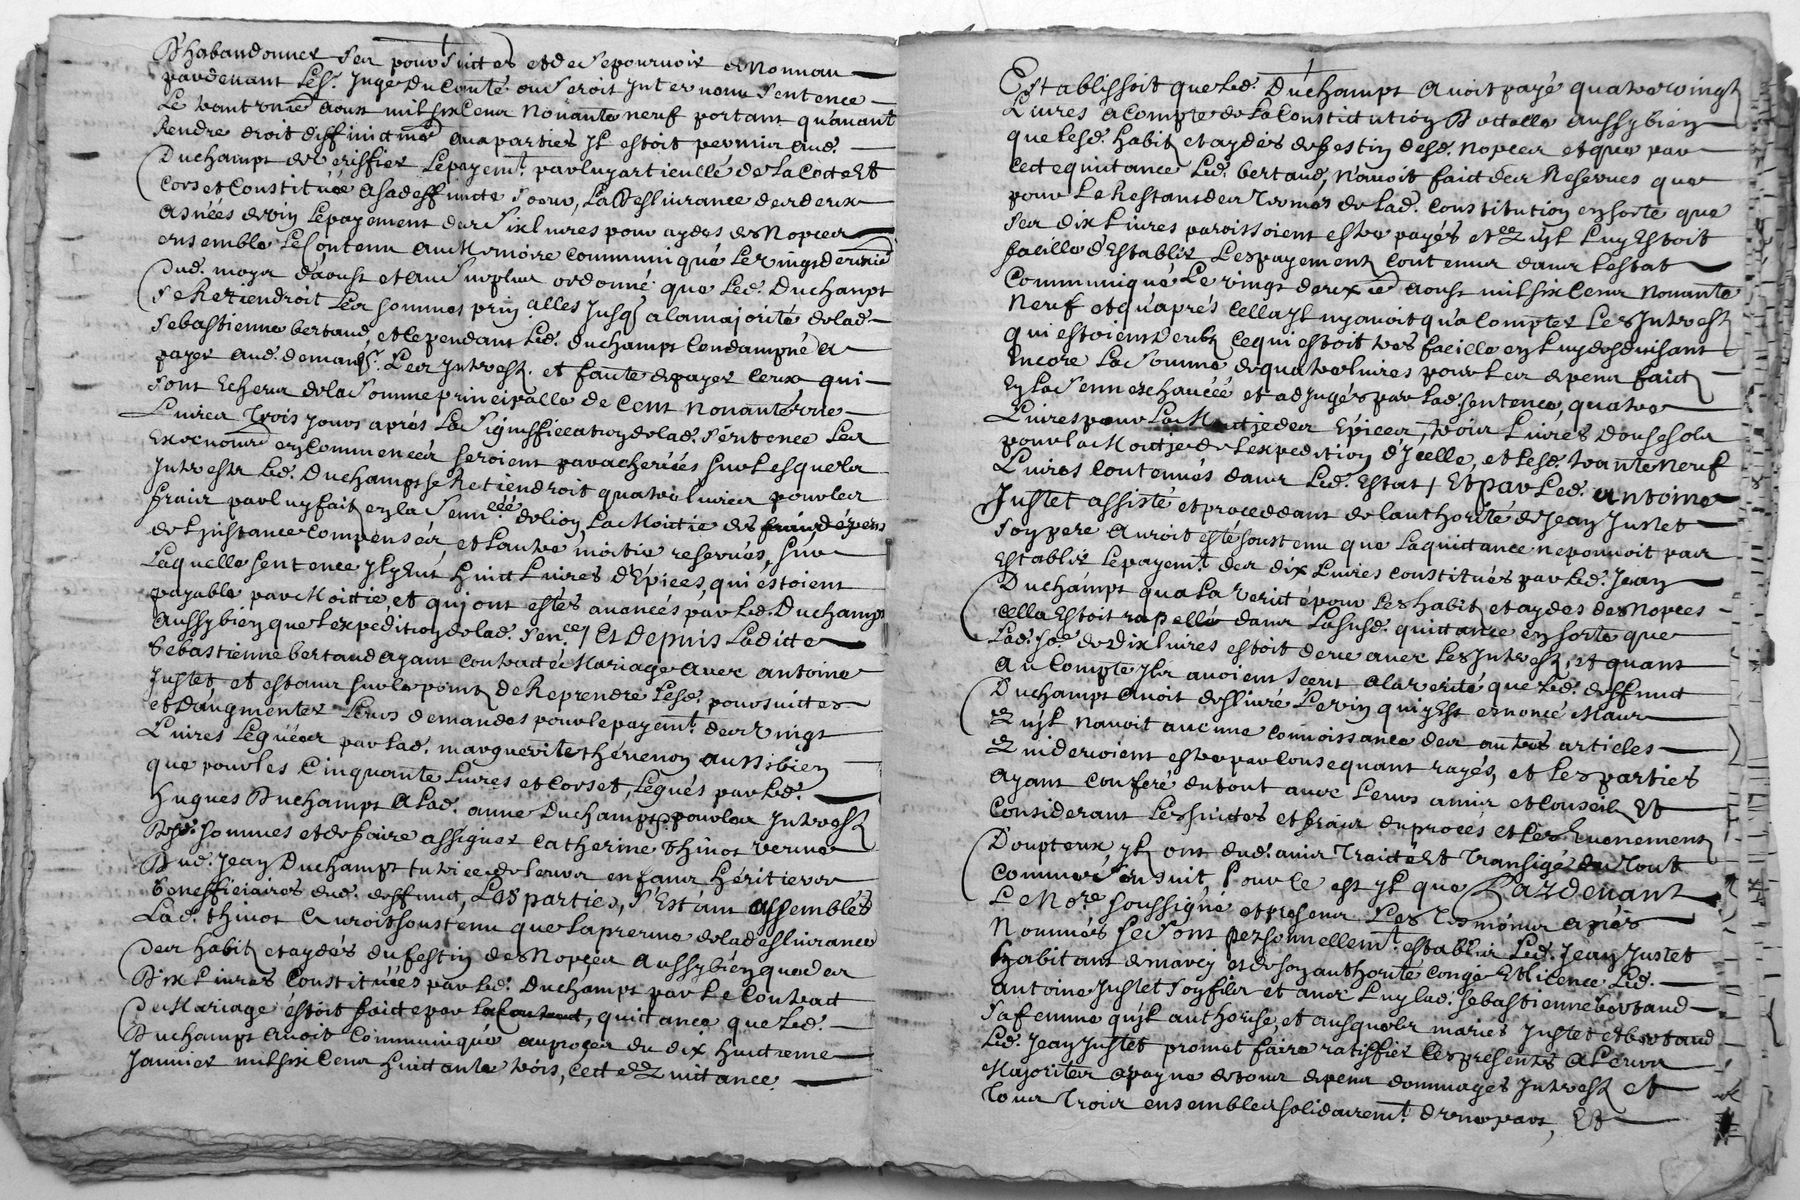 D'habandonner ses poursuittes et de se pourvoir de nouveau
pardevant les s. Juge du Comté ou seroit Intervenu sentence
Le trantvnie aoust mil six cens Nonante neuf portant qu'avant
Rendre droit diffinitmt aux parties Il estoit permis aud.
Duchamps de veriffier le payemt. par luy articullé de la cotte et
Corset Constitué a sa deffuncte soeur, La Deslivrance des deux
asnées de vin le payement des six livres pour aydes de Nopces
ensemble le Contenu au Memoire Communiqué le vingt deuxie
Dud. moys d'aoust et au surplus ordonné que led. Duchamps
se Retiendroit les sommes prinalles Jusq. a la majorité de lad.
Sebastienne bertaud, et cependant led. duchamps Condampné a
payer aud. demandr. Les Intrests. et faute de payer Ceux qui
sont Echeus de la somme principalle de Cent Nonante vne
Livres Trois Jours aprés La signiffication de lad. sentence Les
Executions Commencées seroient parachevées sur lesquels
Intrests led. Duchamps se Retiendroit quatre livres pour les
fraix par luy faits en la Sennceé de lion, La Moitie des dépens
de L'instance Compensés, et l'autre moitie reservés, sur
Laquelle sentence Il y eut huict Livres d'Epices, qui éstoient
payable par Moittie, et qui ont estés avancés par led. Duchamps
Aussy bien que l'expedition de lad. sence. Et Depuis Laditte
Sébastienne bertaud ayant Contracté Mariage avec antoine
Justet et estans sur le point de Reprendre lesd. poursuittes
et d'augmenter leurs demandes pour le payemt. des vingt
Livres Léguées par lad. marguerite thévenon aussi bien
que pour les Cinquante Livres et Corset, Légués par led.
hugues Duchamps a lad. anne Duchamps pour les Intrests
Desd. sommes et de faire assigner Catherine thinot veuve
Dud. Jean Duchamps tutrice de leurs enfans héritiers
beneffieiaires dud. deffunct, Les parties, s'Estans assemblés
Lad. thinot auroit soustenu que la preuve de la deslivrance
Des habits et aydés du festin de Nopces aussy bien que des
Dix Livres Constituées par led. Duchamps par le Contract
De Mariage éstoit faicte par la quittance que led.
Duchamps avoit Communiqué au proces du dix huictieme
Janvier mil six Cens huittante trois, Cette Quittance
Establissoit que led. Duchamps avoit payé quatre vingt
Livres a Compte de la Constitution Dottalle aussy bien
que lesd. habits et aydés de festin desd. nopces et que par
Cette quittance led. bertaud, n'avoit faict des Reserves que
pour le Restant des Termes de lad. Constitution en sorte que
ses dix Livres paroissoient estre payés et qu'il luy Estoit
facille d'Establir Les payements Contenus dans l'estat
Communiqué le vingt deuxie aoust mil six Cens Nonante
Neuf et qu'aprés Cella Il ny avoit qu'a Compter les Intrests
qui estoient deubs Ce qui estoit tres facille en luy desduisant
Encore La Somme de quatre livres pour les depens faicts
En la Sennexchaucéé et adjugés par lad. sentence, quatre
Livres pour la Moitje des Epices, trois Livres douse sols
pour la Moitje de l'expedition d'Jcelle, et lesd. trante neuf
Livres Contenues dans led. Estat, Et par led. antoine
Justet assisté et proceddant de l'authorité de Jean Justet
son pere auroit esté soustenu que la quittance ne pouvoit pas
Establir le payemt. des dix Livres Constitués par led. Jean
Duchamps qu'a la verité pour les habits et aydes des Nopces
Cella Estoit rapellé dans La susd. quittance en sorte que
Lad. soe. de Dix livres estoit deue avec les Intrests, et quant
Au Compte Ils avoient sceut a la verité que led. deffunct
Duchamps avoit desliuré le vin qui y Est enoncé Mais
qu'il n'avoit aucune connoissance des autres articles
qui devoient estre par Consequant rayés, et les parties
ayant Conferé du tout avec leurs amis et Conseils Et
Considerant les suittes et fraix du procés et les Evenements
Doupteux Ils ont dud. avis Traicté et Transigé du Tout
Comme s'en suit. Pour Ce est Il que Pardevant
Le Nore. soussigné et presens les Tesmoins aprés
Nommés se sont personnellemt. establis Led. Jean Justet
habitant de marcy et de son authorité Congé Et licence Led.
Antoine Justet son fils et avec luy lad. sebastienne bertaud
sa femme qu'il authorise, et ausquels mariés Justet et bertaud
Led. Jean Justet promet faire ratiffier Ces presents a leurs
Majorités a payne de tous depens dommages Intrests et
Tous Trois ensembles solidairemt. d'vne part, Et